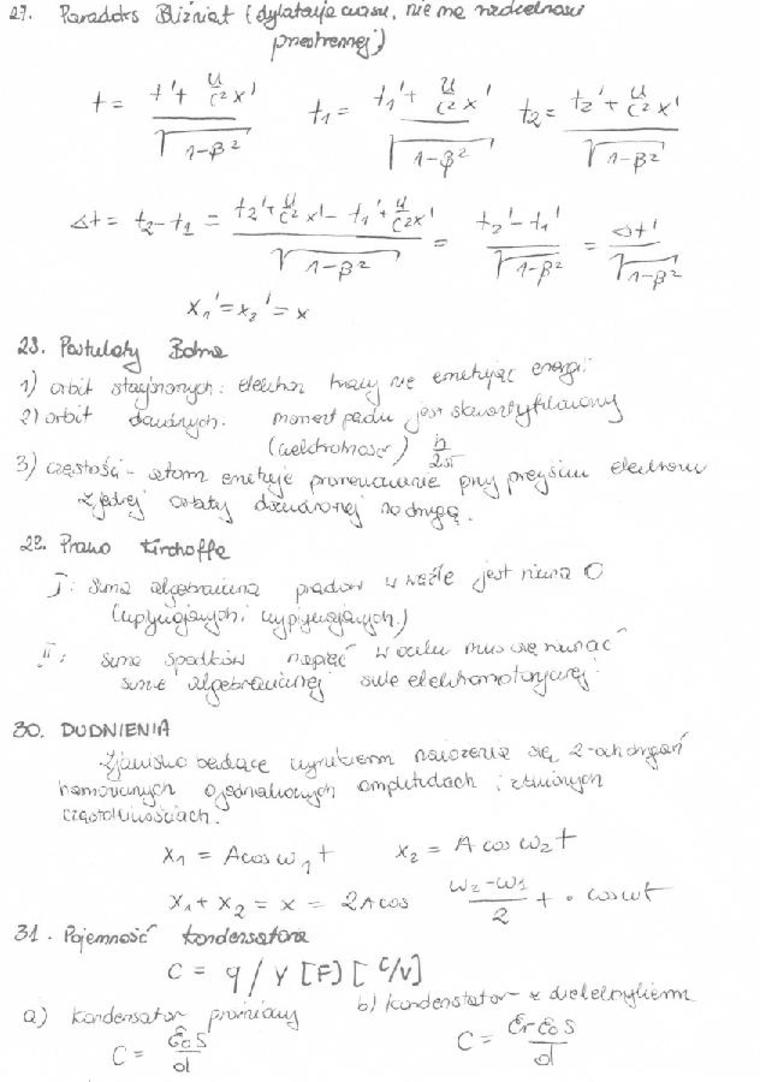 27. Paradoks Bliźniąt (dylatacja czasu, nie ma rozdzielności
przestrzennej)
t = (t' + u/c² x') / √(1-β²)   t₁ = (t₁' + u/c² x') / √(1-β²)   t₂ = (t₂' + u/c² x') / √(1-β²)
Δt = t₂ - t₁ = (t₂' + u/c² x' - t₁' + u/c² x') / √(1-β²) = (t₂' - t₁') / √(1-β²) = Δt' / √(1-β²)
x₁' = x₂' = x
28. Postulaty Bohra
1) orbit stacjonarnych: elektron krąży nie emitując energii
2) orbit dozwolonych: moment pędu jest skwantyfikowany
(wielokrotność) h/2π
3) częstości - atom emituje promieniowanie przy przejściu elektronu
z jednej orbity dozwolonej na drugą.
22. Prawo Kirchoffa
I: suma algebraiczna prądów w węźle jest równa 0
(wpływających i wypływających.)
II: suma spadków napięć w oczku musi się równać
sumie algebraicznej sile elektromotorycznej
30. DUDNIENIA
Zjawisko będące wynikiem nałożenia się 2-och drgań
harmonicznych o jednakowych amplitudach i zbliżonych
częstotliwościach.
x₁ = A cos ω₁ t   x₂ = A cos ω₂ t
x₁ + x₂ = x = 2A cos (ω₂-ω₁)/2 t · cos ωt
31. Pojemność kondensatora
C = q / V [F] [C/V]
a) kondensator próżniowy   b) kondenstator z dielektrykiem
C = ε₀S/d   C = εrε₀S/d